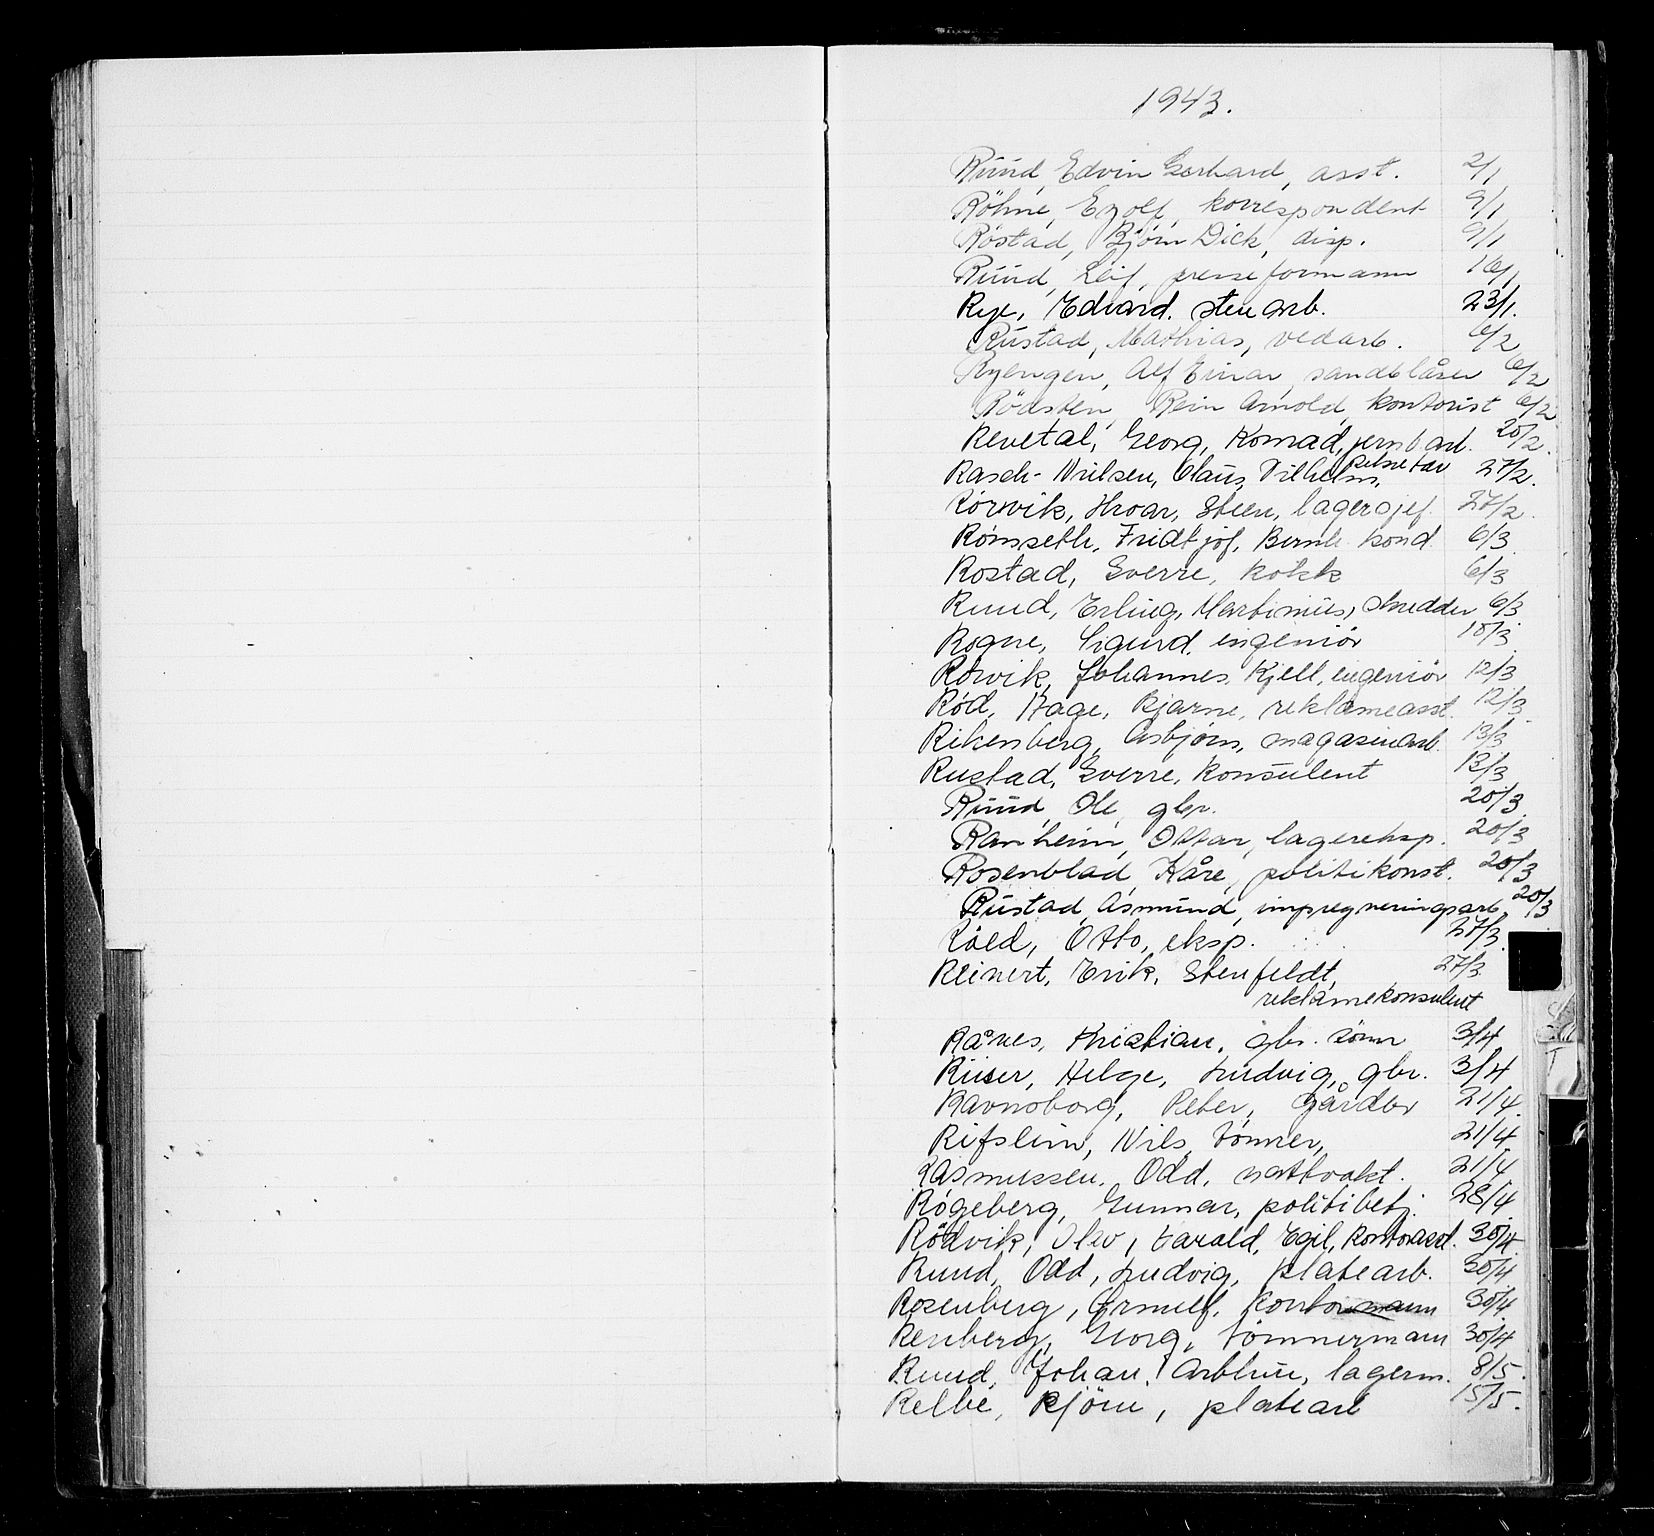 1943.
Ruud, Edvin Gerhard, asst. 2/1
Röhne, Eyolf, korrespondent 9/1
Röstad, Björn Dick, disp. 9/1
Ruud, Leif, presseformann 16/1
Rye, Edvard. stenarb. 23/1.
Rustad, Mathias, vedarb. 6/2
Ryengen, Alf Einar, sandblåser 6/2
Rödsten, Rein Arnold, kontorist 6/2
Revetal, Georg, Konrad, jernbarb. 20/2.
Rasch-Nielsen, Claus, Vilhelm, sekretær 27/2.
Rörvik, Hroar, Steen, lagersjef. 27/2.
Römseth, Fridtjof, Bernh. kond. 6/3
Rostad, Sverre, kokk 6/3
Ruud, Erling, Martinius, skredder 6/3
Rogne, Sigurd, ingeniör 10/3
Rörvik, Johannes, Kjell, ingeniör 12/3
Röd, Aage, Bjarne, reklameasst. 12/3
Rikenberg, Asbjörn, magasinarb. 13/3
Rustad, Sverre, konsulent 13/3
Ruud, Ole, gbr. 20/3
Ranheim, Ottar, lagereksp. 20/3
Rosenblad, Kåre, politikonst. 20/3
Rustad, Asmund, impregneringsarb. 20/3
Röed, Otto, eksp. 27/3.
Reinert, Erik, Stenfeldt, 27/3
reklamekonsulent
Rånes, Kristian, gbr. sönn 3/4
Riiser, Helge, Ludvig, gbr. 3/4
Ravnsborg, Peter, gårdbr 21/4.
Rifslin, Nils, tömrer, 21/4
Rasmussen, Odd, nattvakt. 21/4
Rögeberg, Gunnar, politibetj. 28/4
Rödvik, Olav, Harald, Egil, kontorasst. 30/4
Ruud, Odd, Ludvig, platearb. 30/4
Rosenberg, Arnulf, kontormann 30/4
Renberg, Georg, tömmermann 30/4
Ruud, Johan, lagerm. 8/5.
Relbe, Björn, platearb 15/5.